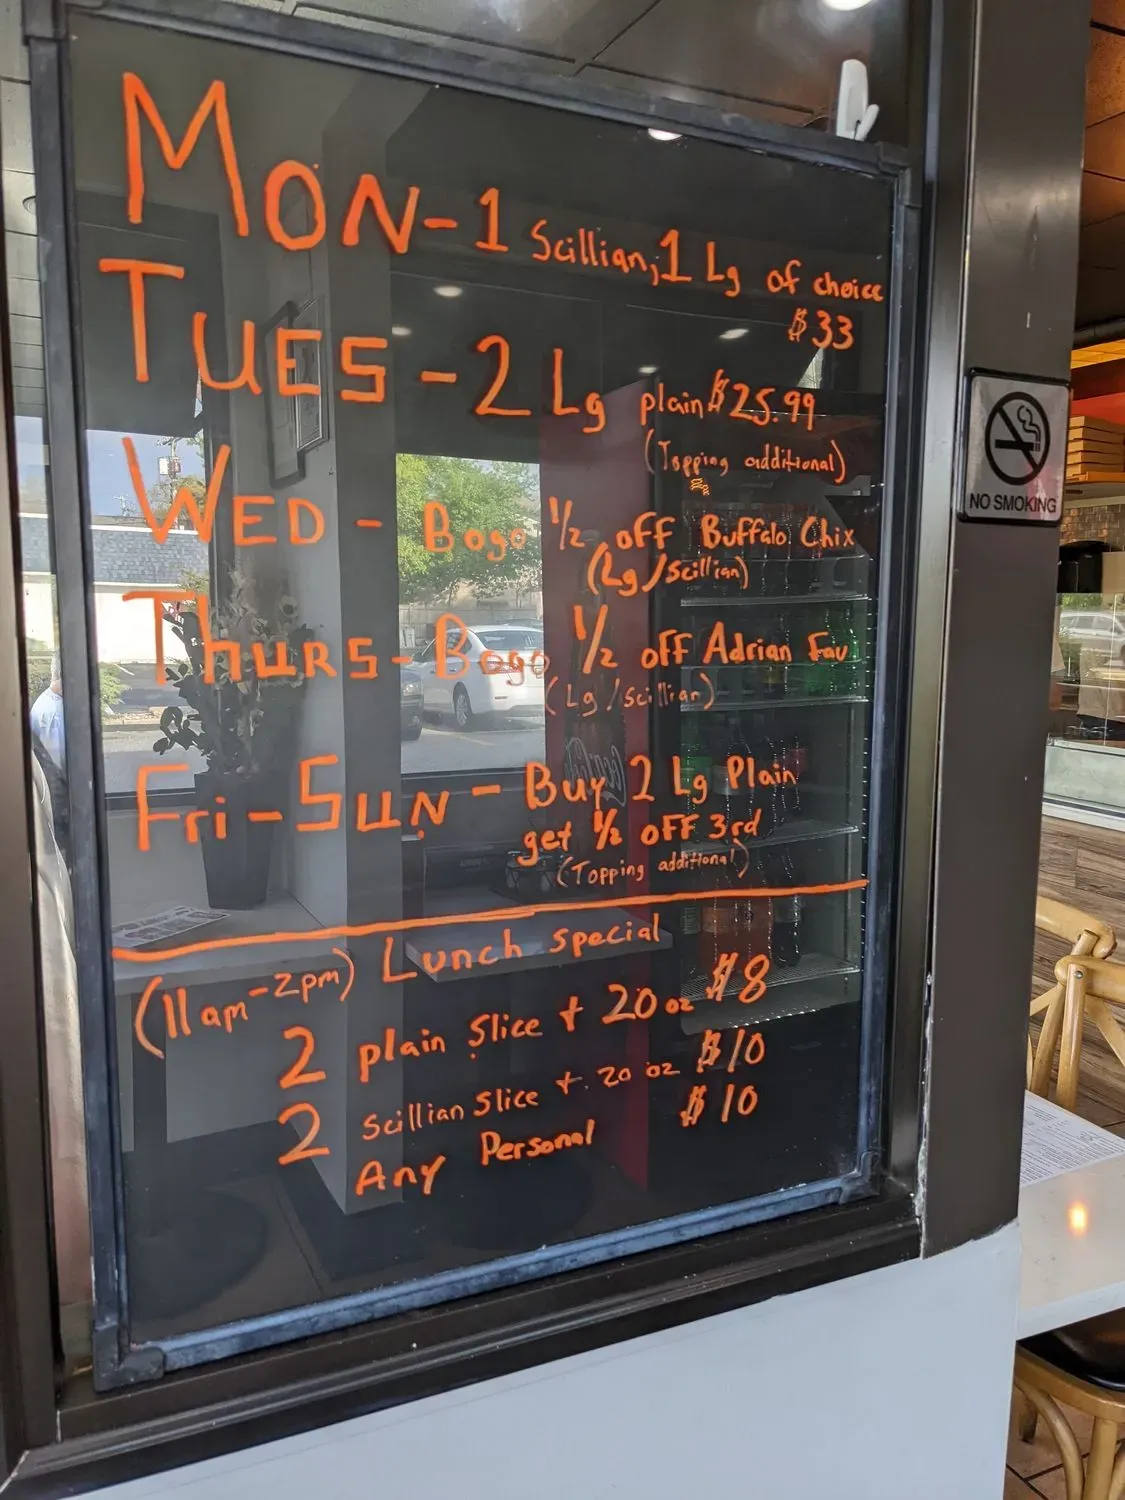 MON-1 Scillian, 1 Lg of choice
$33
TUES-2 Lg plain $25.99
(Topping additional)
WED - Bogo 1/2 off Buffalo Chix
(Lg/Scillian)
Thurs- Bogo 1/2 off Adrian Fav
(Lg/Scillian)
Fri-Sun - Buy 2 Lg Plain
get 1/2 off 3rd
(Topping additional)
(11am-2pm) Lunch special
2 plain Slice + 20 oz $8
2 Scillian Slice + 20 oz $10
Any Personal $10
NO SMOKING